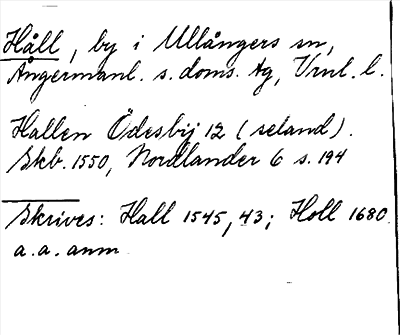 Håll, by i Ullångers sn,
Ångermanl. s. doms. tg, Vrnl. l.
Hallen Ödesbij 12 (seland).
Skb. 1550, Nordlander 6 s. 194
Skrives: Hall 1545, 43; Holl 1680.
a. a. anm